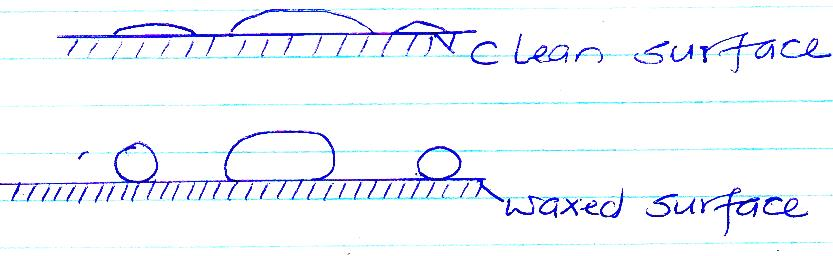 Clean surface
waxed surface